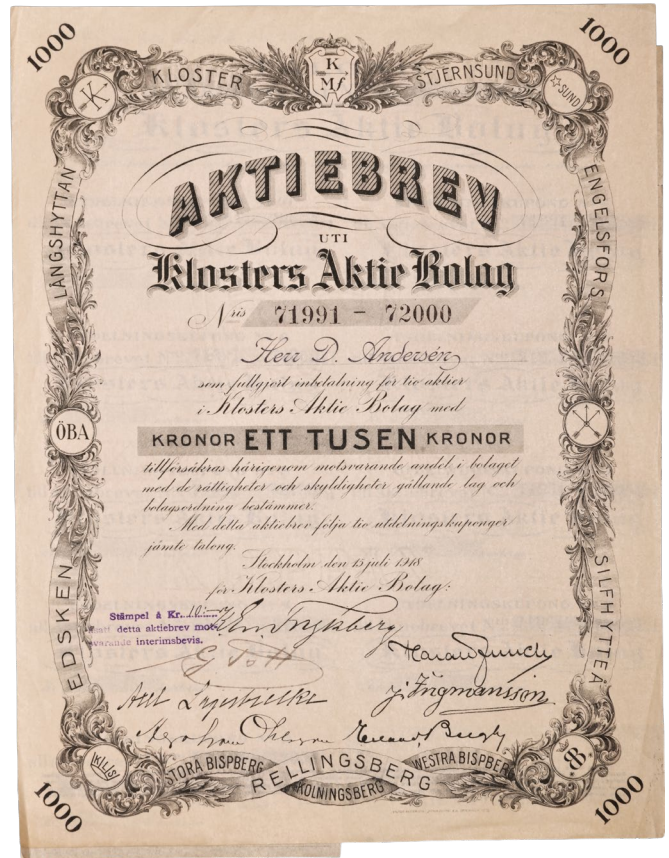 1000
1000
KLOSTER
K
Mf
STJERNSUND
K
SUND
LÅNGSHYTTAN
ENGELSFORS
AKTIEBREV
UTI
Klosters Aktie Bolag
Nris 71991 - 72000
Herr D. Andersén
som fullgjort inbetalning för tio aktier
i Klosters Aktie Bolag med
ÖBA
KRONOR ETT TUSEN KRONOR
tillförsäkras härigenom motsvarande andel i bolaget
med de rättigheter och skyldigheter gällande lag och
bolagsordning bestämmer.
Med detta aktiebrev följa tio utdelningskuponger
jämte talong.
Stockholm den 15 juli 1918
för Klosters Aktie Bolag:
EDSKEN
SILFHYTTEÅ
Stämpel å Kr. 10:-
detta aktiebrev mot-
svarande interimsbevis.
J. Ingmansson
STORA BISPBERG
RELLINGSBERG
WESTRA BISPBERG
KOLNINGSBERG
1000
1000